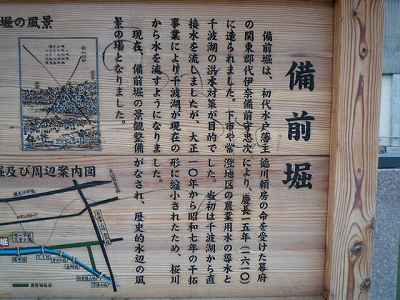 備前堀
備前堀は、初代水戸藩主徳川頼房の命を受けた幕府
の関東郡代伊奈備前守忠次により、慶長一五年(一六一〇)
に造られました。下市や常澄地区の農業用水の導水と
千波湖の洪水対策が目的でした。当初は千波湖から直
接水を流しましたが、大正一〇年から昭和七年の干拓
事業により千波湖が現在の形に縮小されたため、桜川
から水を流すようになりました。
現在、備前堀の景観整備がなされ、歴史的水辺の風
景の場となりました。
堀の風景
堀及び周辺案内図